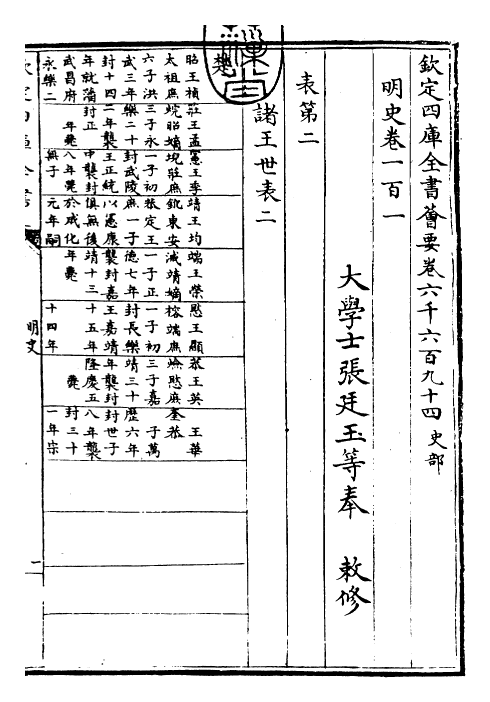 欽定四庫全書薈要卷六千六百九十四 史部
明史卷一百一
大學士張廷玉等奉 敕修
表第二
諸王世表二
楚
昭王楨
太祖庶
六子洪
武三年
封十四
年就藩
武昌府
永樂二
莊王孟
烷昭嫡
三子永
樂二十
二年襲
封正
年薨
憲王季
堄莊庶
一子初
封武陵
王正統
中襲封
八年薨
無子
靖王均
鈋東安
恭定王
庶一子
以憲康
俱無後
於成化
元年嗣
端王榮
㳦靖嫡
一子正
德七年
襲封嘉
靖十三
年薨
愍王顯
榕端庶
一子初
封長樂
王嘉靖
十五年
十四年
恭王英
愍庶
三子嘉
靖三十
年襲封
隆慶五
薨
王華
奎恭
子萬
歷六年
封世子
八年襲
封三十
一年宗
明史
一